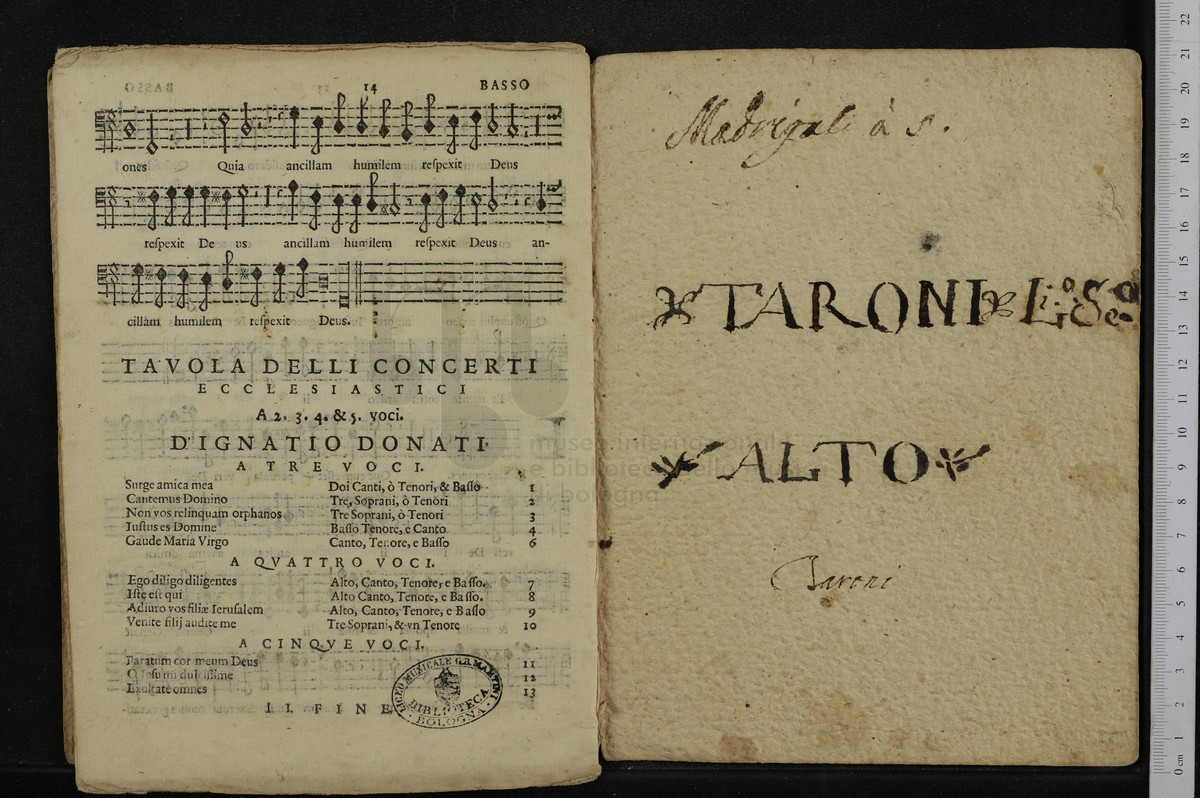 14 BASSO
ones Quia ancillam humilem reſpexit Deus
reſpexit De us ancillam humilem reſpexit Deus an-
cillam humilem reſpexit Deus.
TAVOLA DELLI CONCERTI
ECCLESIASTICI
A 2. 3. 4. & 5. voci.
D'IGNATIO DONATI.
A TRE VOCI.
Surge amica mea Doi Canti, ò Tenori, & Baſſo 1
Cantemus Domino Tre, Soprani, ò Tenori 2
Non vos relinquam orphanos Tre Soprani, ò Tenori 3
Iuſtus es Domine Baſſo Tenore, e Canto 4
Gaude Maria Virgo Canto, Tenore, e Baſſo 6
A QVATTRO VOCI.
Ego diligo diligentes Alto, Canto, Tenore, e Baſſo. 7
Iſte eſt qui Alto Canto, Tenore, e Baſſo. 8
Adiuro vos filiæ Ieruſalem Alto, Canto, Tenore, e Baſſo 9
Venite filij audite me Tre Soprani, & vn Tenore 10
A CINQVE VOCI.
Paratum cor meum Deus 11
O Ieſu mi dulciſſime 12
Exultate omnes 13
IL FINE
LICEO MUSICALE G.B. MARTINI
BIBLIOTECA
BOLOGNA
Madrigali à 5.
TARONI L.º Se.º
ALTO
Taroni
museo internazionale
e biblioteca della
di bologna
0 cm 1 2 3 4 5 6 7 8 9 10 11 12 13 14 15 16 17 18 19 20 21 22